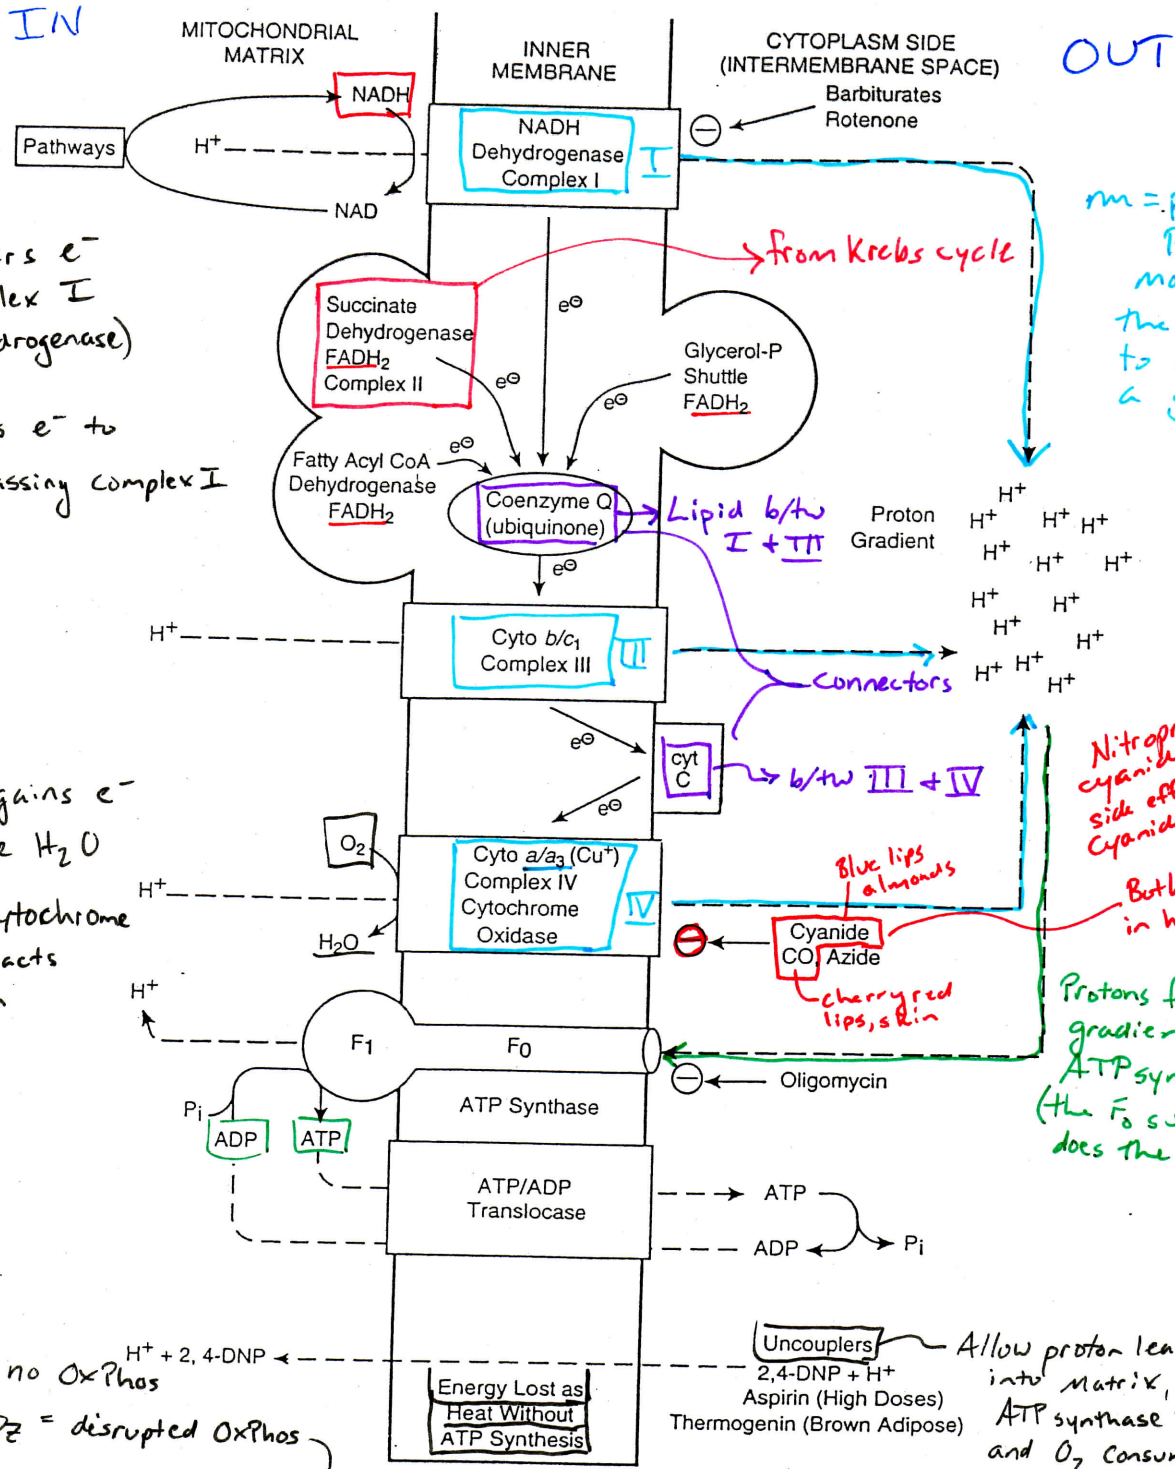 IN
MITOCHONDRIAL
MATRIX
INNER
MEMBRANE
CYTOPLASM SIDE
(INTERMEMBRANE SPACE)
OUT
NADH
Pathways
H⁺
NAD
NADH
Dehydrogenase
Complex I
I
Barbiturates
Rotenone
nm =
the
to
a
e⁻
I
e⁻ to
complex I
from Krebs cycle
Succinate
Dehydrogenase
FADH₂
Complex II
e⊖
e⊖
Glycerol-P
Shuttle
FADH₂
e⊖
Fatty Acyl CoA
Dehydrogenase
FADH₂
e⊖
Coenzyme Q
(ubiquinone)
Lipid b/tw
I + III
e⊖
Proton
Gradient
H⁺
H⁺ H⁺ H⁺
H⁺ H⁺ H⁺
H⁺ H⁺
H⁺ H⁺
H⁺ H⁺ H⁺
H⁺
Cyto b/c₁
Complex III
III
connectors
e⊖
cyt
C
b/tw III + IV
e⊖
gains e⁻
H₂O
cytochrome
acts
O₂
H⁺
H₂O
Cyto a/a₃ (Cu⁺)
Complex IV
Cytochrome
Oxidase
IV
Blue lips
almonds
Cyanide
CO, Azide
cherry red
lips, skin
cyanide
side
Both
in
H⁺
F₁
F₀
ATP Synthase
Oligomycin
Protons
ATP
(the F₀
does the
Pᵢ
ADP
ATP
ATP/ADP
Translocase
ATP
ADP
Pᵢ
H⁺ + 2, 4-DNP
Energy Lost as
Heat Without
ATP Synthesis
Uncouplers
2,4-DNP + H⁺
Aspirin (High Doses)
Thermogenin (Brown Adipose)
Allow proton
into Matrix,
ATP synthase
and O₂
no OxPhos
= disrupted OxPhos